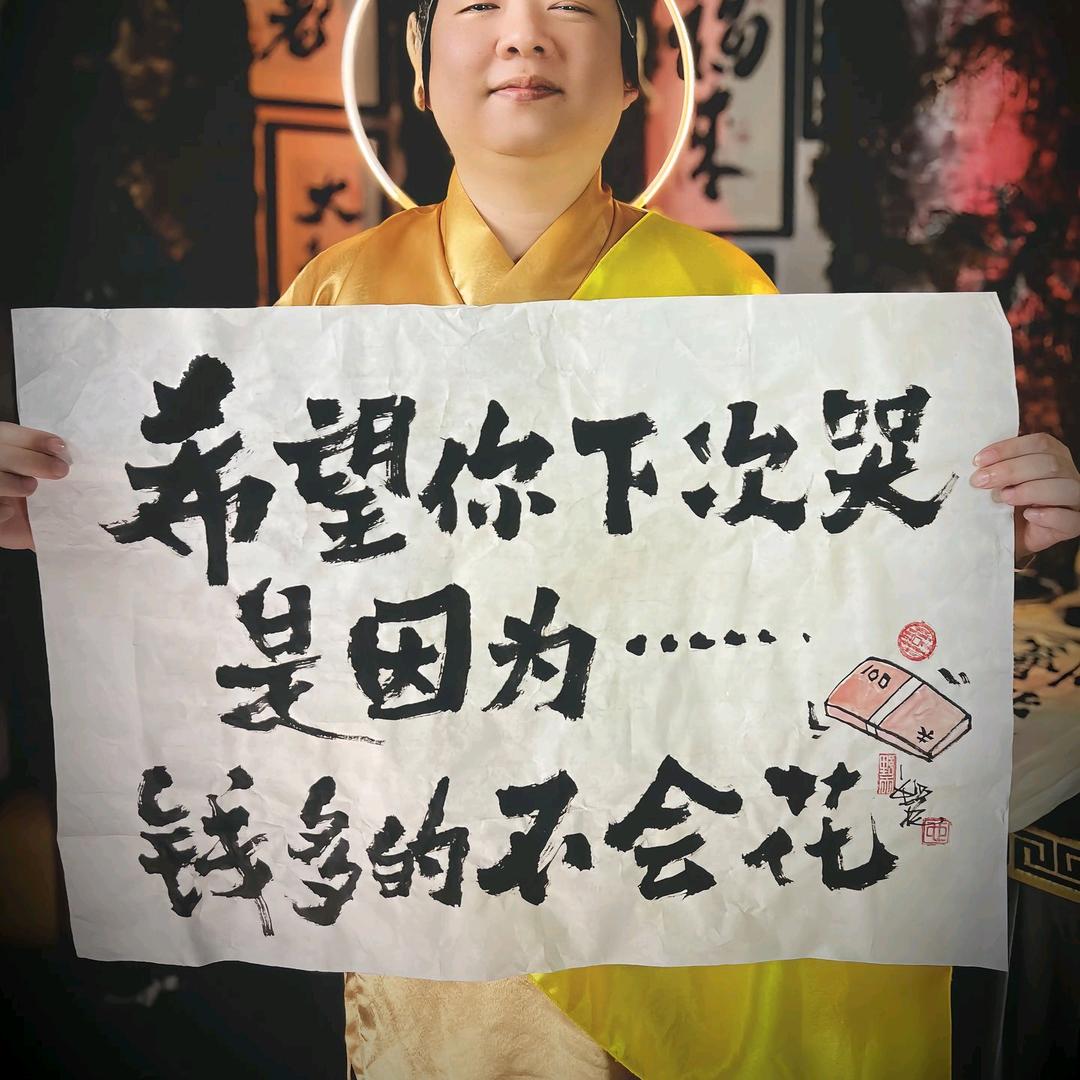 希望你下次哭
是因为……
钱多的不会花
100
大